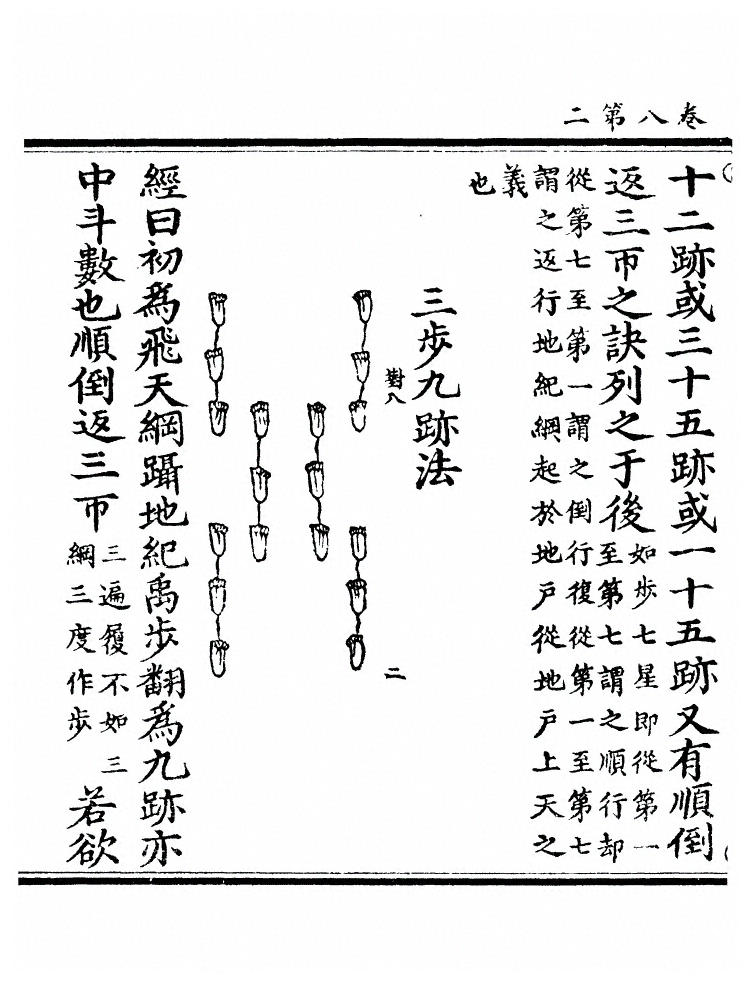 卷八第二
十二跡或三十五跡或一十五跡又有順倒
返三帀之訣列之于後
如步七星即從第一
至第七謂之順行却
從第七至第一謂之倒行復從第一至第七
謂之返行地紀綱起於地戶從地戶上天之
義
也
三步九跡法
對八
二
經曰初爲飛天綱躡地紀禹步翻爲九跡亦
中斗數也順倒返三帀
三遍履不如三
綱三度作步
若欲